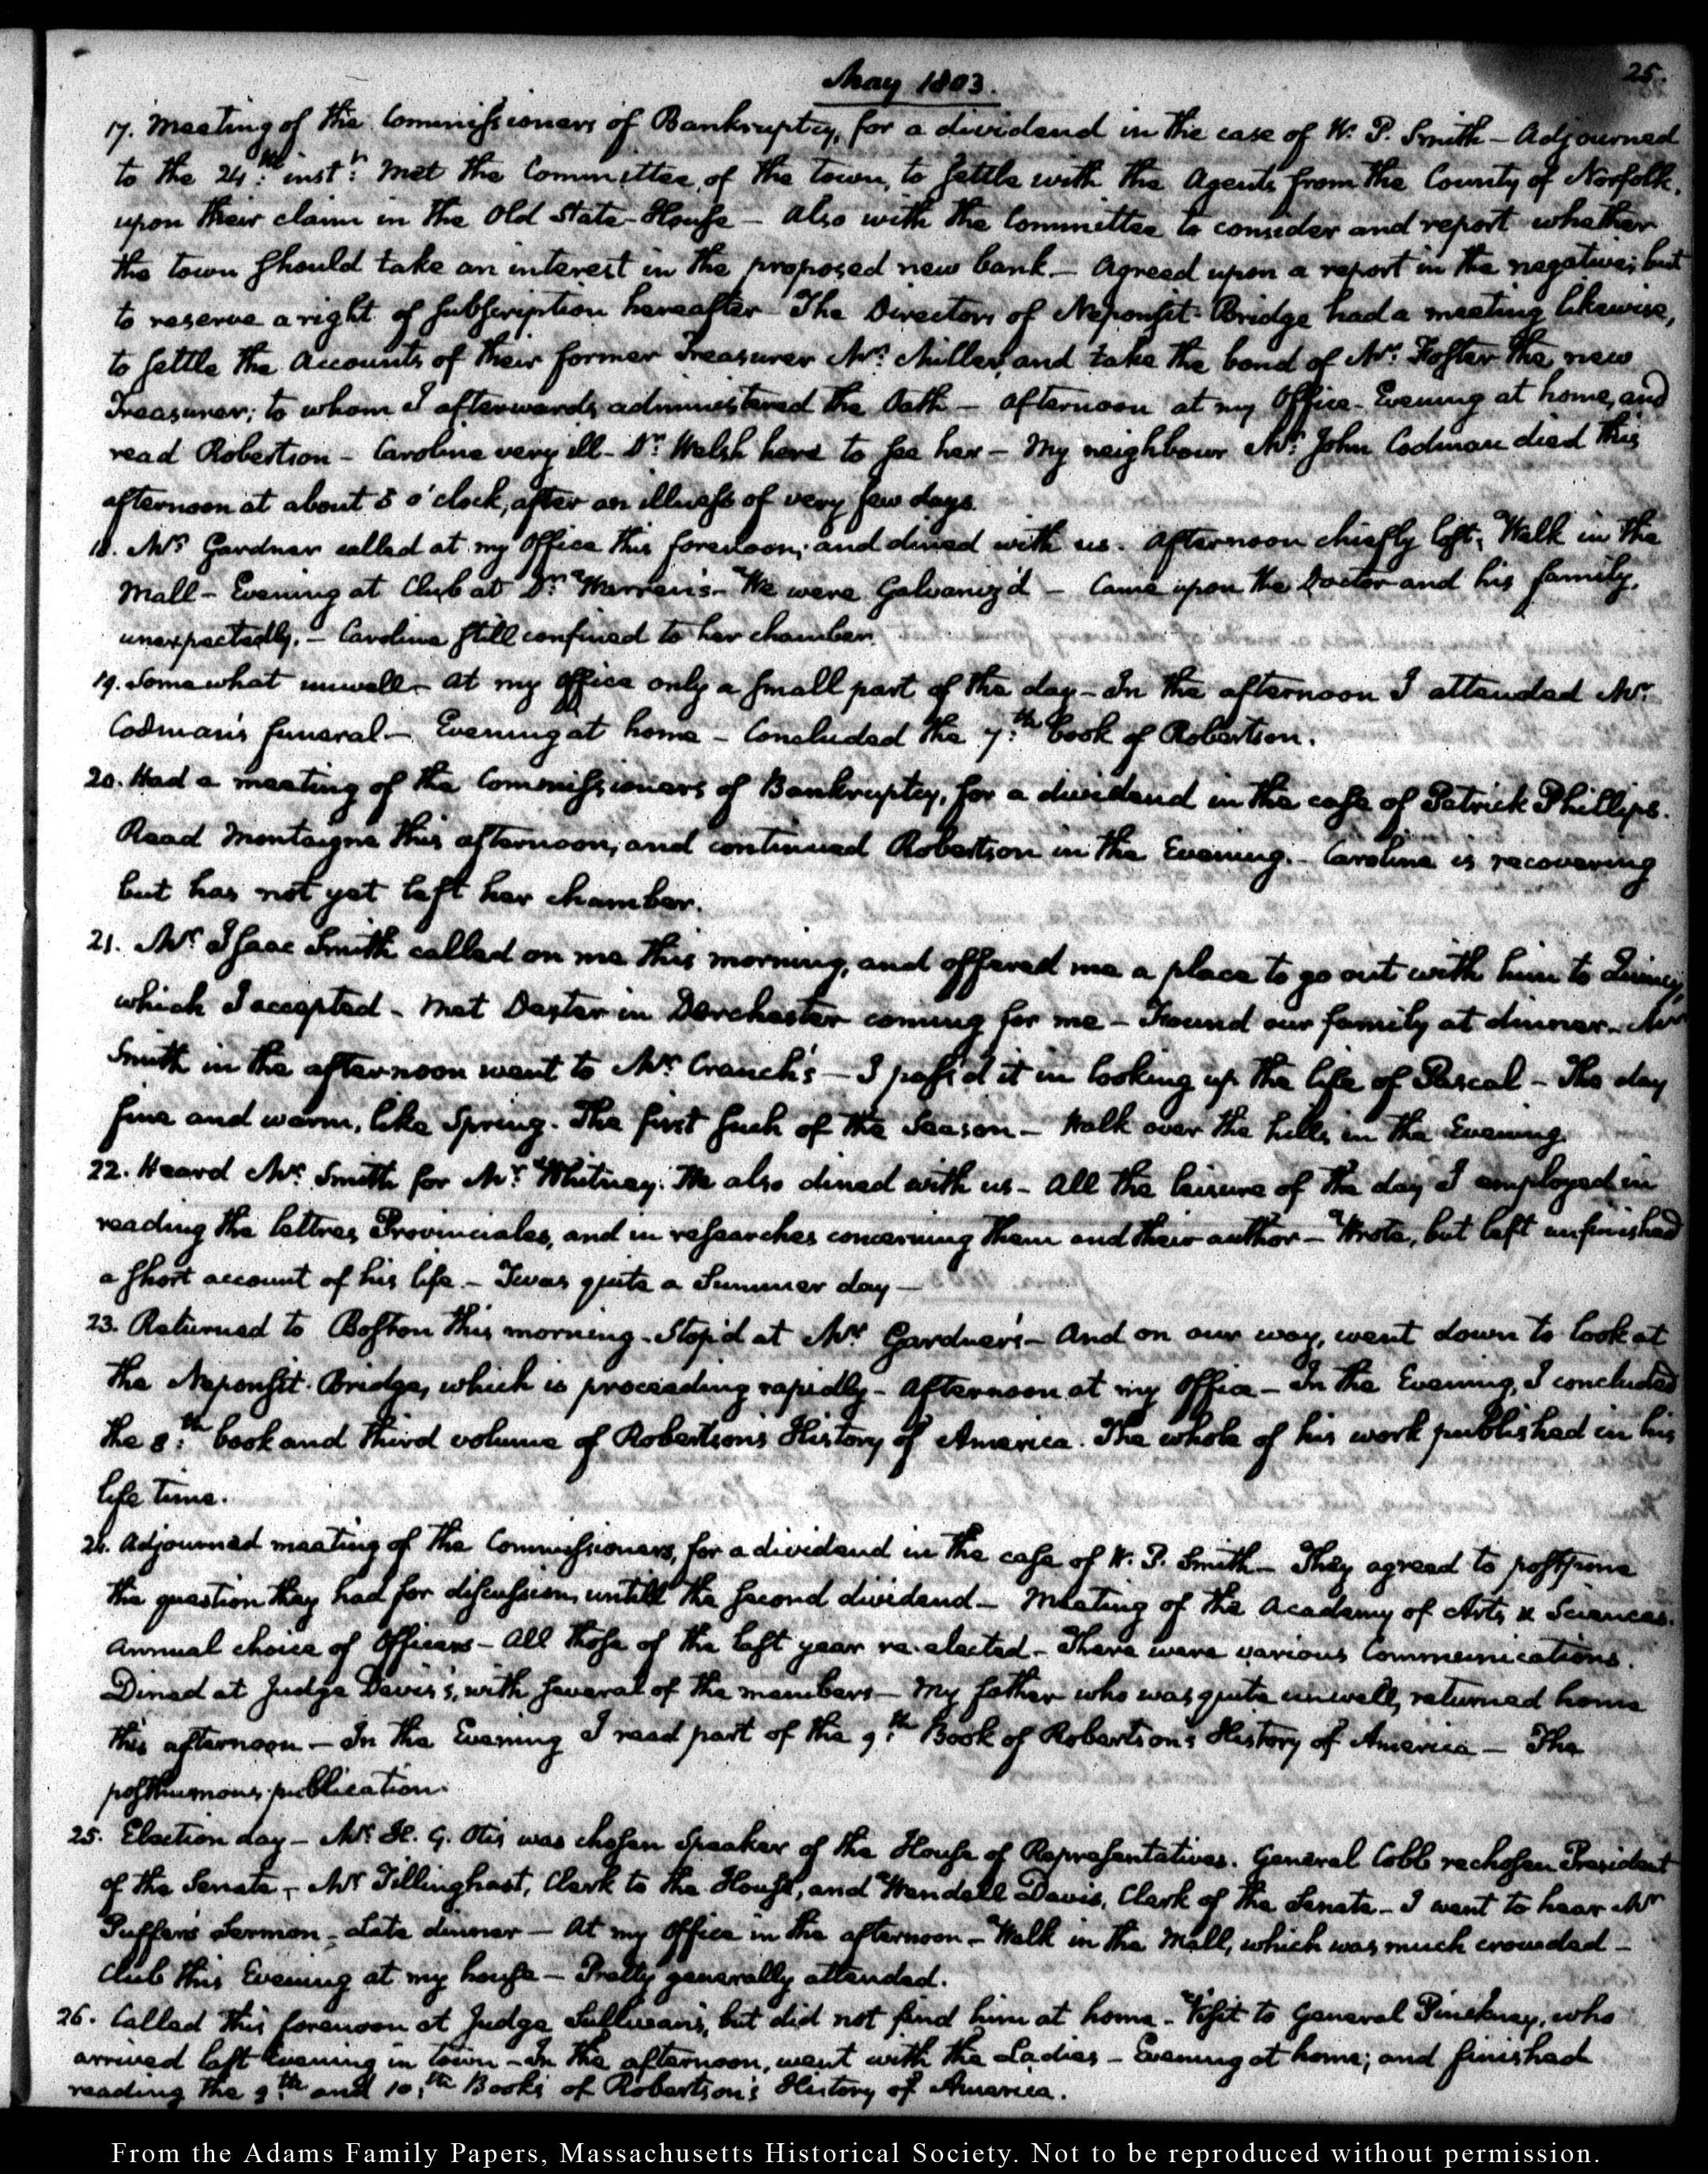 25.
May 1803.
17. Meeting of the Commissioners of Bankruptcy, for a dividend in the case of W. P. Smith — Adjourned
to the 24:th inst:t Met the Committee, of the town, to settle with the Agents from the County of Norfolk,
upon their claim in the Old State-House — Also with the Committee to consider and report whether
the town should take an interest in the proposed new bank. — Agreed upon a report in the negative; but
to reserve a right of subscription hereafter — The Directors of Neponsit-Bridge had a meeting likewise,
to settle the Accounts of their former Treasurer Mr: Miller, and take the bond of Mr. Foster the new
Treasurer; to whom I afterwards administered the Oath — Afternoon at my Office — Evening at home, and
read Robertson — Caroline very ill — Dr: Welsh here to see her — My neighbour Mr: John Codman died this
afternoon at about 5 o'clock, after an illness of very few days.
18. Mrs Gardner called at my Office this forenoon; and dined with us. Afternoon chiefly lost. Walk in the
Mall — Evening at Club at Dr: Warren's — We were Galvaniz'd — Came upon the Doctor and his family,
unexpectedly. — Caroline still confined to her chamber.
19. Somewhat unwell — At my Office only a small part of the day — In the afternoon I attended Mr.
Codman's funeral — Evening at home — Concluded the 7:th book of Robertson.
20. Had a meeting of the Commissioners of Bankruptcy, for a dividend in the case of Patrick Phillips.
Read Montaigne this afternoon; and continued Robertson in the Evening. — Caroline is recovering
but has not yet left her chamber.
21. Mr Isaac Smith called on me this morning, and offered me a place to go out with him to Quincy,
which I accepted — Met Dexter in Dorchester coming for me — Found our family at dinner — Mr
Smith in the afternoon went to Mr Cranch's — I pass'd it in looking up the life of Pascal — The day
fine and warm, like Spring. The first such of the Season — Walk over the hills in the Evening.
22. Heard Mr. Smith for Mr. Whitney. He also dined with us — All the leisure of the day I employed in
reading the lettres Provinciales, and in researches concerning them and their author — Wrote, but left unfinished
a short account of his life — Twas quite a Summer day —
23. Returned to Boston this morning. Stop'd at Mrs Gardner's — And on our way, went down to look at
the Neponsit-Bridge, which is proceeding rapidly — Afternoon at my Office — In the Evening, I concluded
the 8:th book and third volume of Robertson's History of America. The whole of his work published in his
life time.
24. Adjourned meeting of the Commissioners, for a dividend in the case of W. P. Smith — They agreed to postpone
the question they had for discussion, untill the second dividend — Meeting of the Academy of Arts & Sciences.
Annual choice of Officers — All those of the last year re-elected — There were various Communications.
Dined at Judge Davis's, with several of the members — My father who was quite unwell, returned home
this afternoon — In the Evening I read part of the 9:th Book of Robertson's History of America — The
posthumous publication.
25. Election day — Mr H. G. Otis was chosen Speaker of the House of Representatives. General Cobb rechosen President
of the Senate — Mr Tillinghast, Clerk to the House, and Wendell Davis, Clerk of the Senate — I went to hear Mr
Puffer's Sermon — Late dinner — At my Office in the afternoon — Walk in the Mall, which was much crowded —
Club this Evening at my house — Pretty generally attended.
26. Called this forenoon at Judge Sullivan's, but did not find him at home — Visit to General Pinckney, who
arrived last Evening in town — In the afternoon, went with the Ladies — Evening at home; and finished
reading the 9:th and 10:th Books of Robertson's History of America.
From the Adams Family Papers, Massachusetts Historical Society. Not to be reproduced without permission.